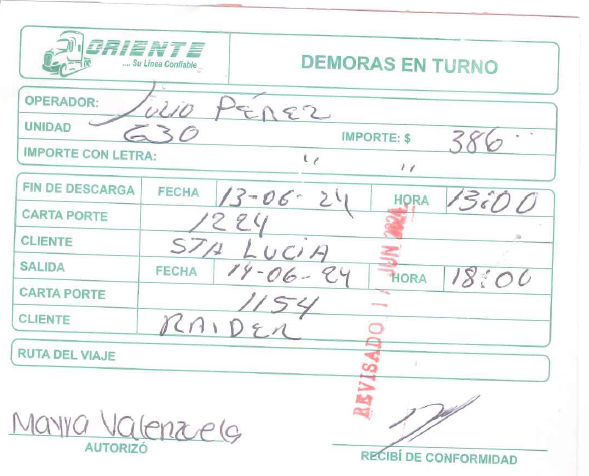 ORIENTE
.... Su Línea Confiable
DEMORAS EN TURNO
OPERADOR: Julio PÉREZ
UNIDAD 630 IMPORTE: $ 386
IMPORTE CON LETRA: " "
FIN DE DESCARGA FECHA 13-06-24 HORA 13:00
CARTA PORTE 1224
CLIENTE STA LUCIA
SALIDA FECHA 14-06-24 HORA 18:00
CARTA PORTE 1154
CLIENTE RAIDER
RUTA DEL VIAJE
REVISADO JUN 2024
Mayra Valenzuela
AUTORIZÓ
RECIBÍ DE CONFORMIDAD